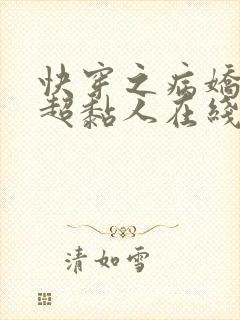 快穿之病嬌
超黏人在綫
清如雪